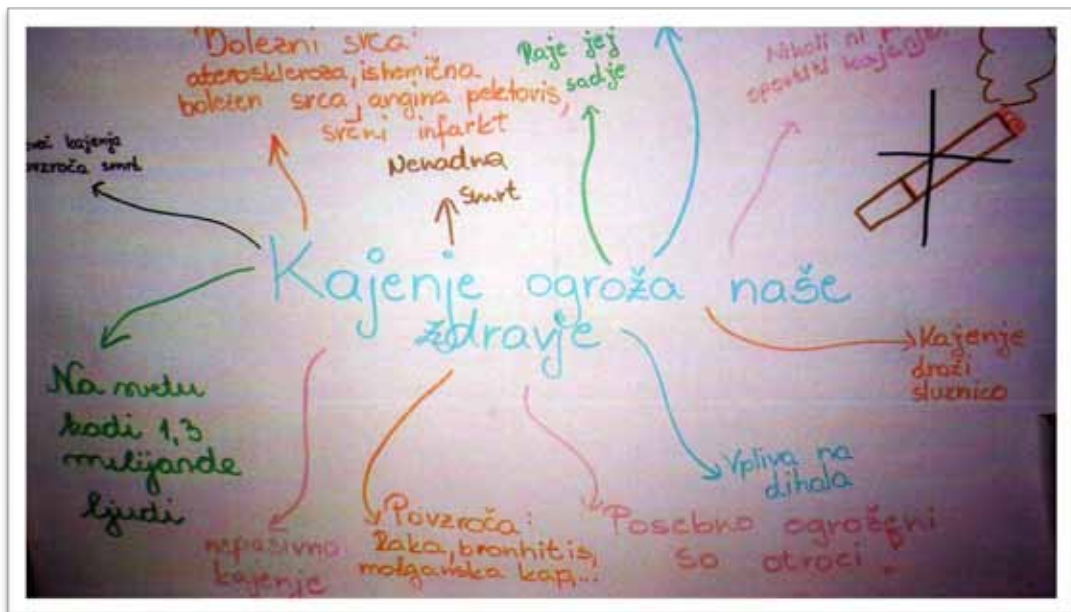 Bolezni srca:
ateroskleroza, ishemična
bolezen srca, angina pektoris,
srčni infarkt
Raje jej
sadje
Nikoli ni
opustiti kajenje
kajenja
povzroča smrt
Nenadna
smrt
Kajenje ogroža naše
zdravje
Kajenje
draži
sluznico
Na svetu
kadi 1,3
milijarde
ljudi
Vpliva na
dihala
nepasivno
kajenje
Povzroča:
Raka, bronhitis,
možganska kap,...
Posebno ogroženi
so otroci!